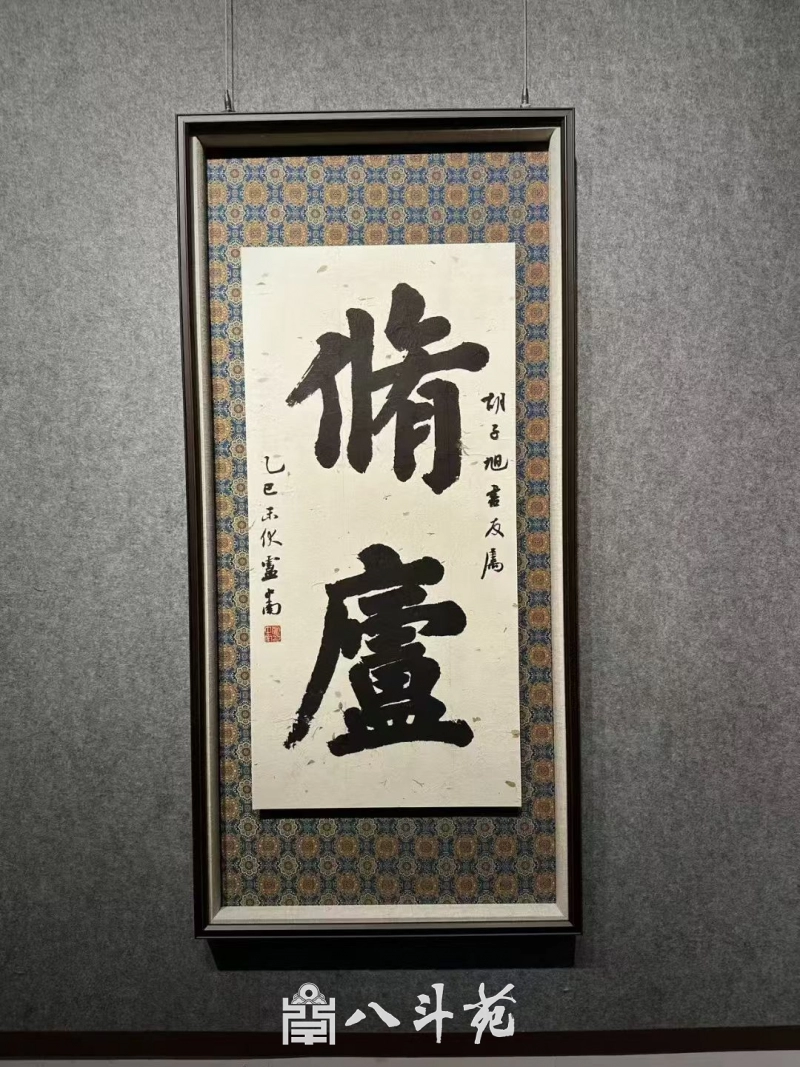 胡子旭書友属
脩廬
乙巳末伏盧中南
八斗苑